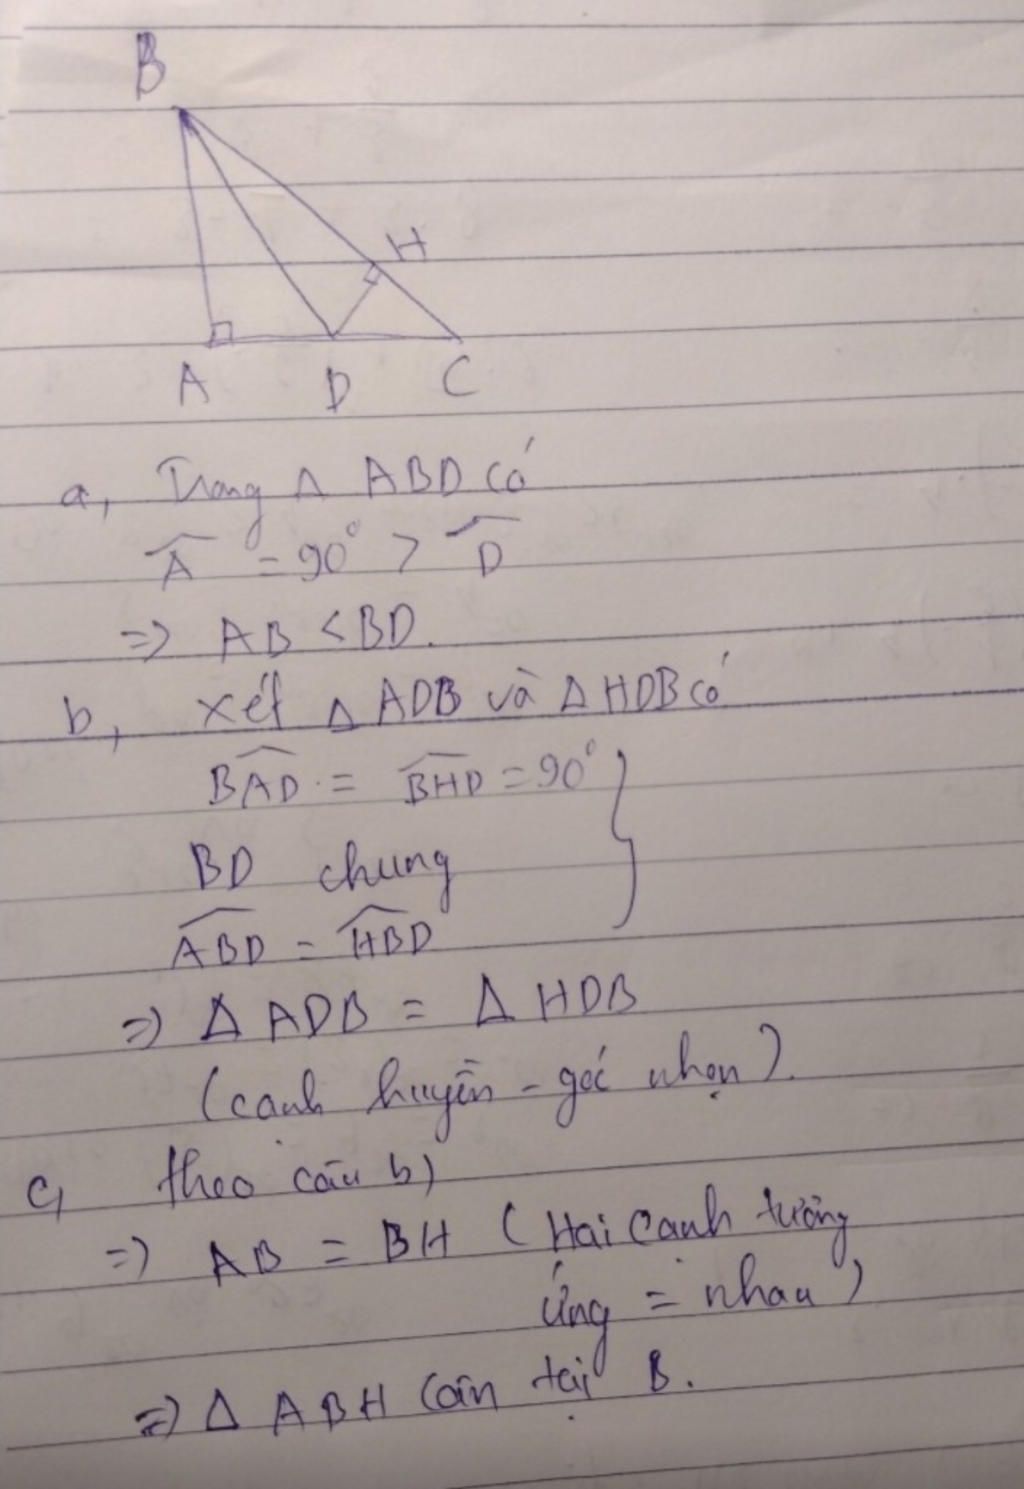 B
H
A D C
a, Trong Δ ABD có
Â = 90° > D̂
=> AB < BD.
b, xét Δ ADB và Δ HDB có
B͡AD = B͡HD = 90°
BD chung
A͡BD = H͡BD
=> Δ ADB = Δ HDB
(cạnh huyền - góc nhọn).
c, theo câu b)
=> AB = BH (Hai cạnh tương
ứng = nhau)
=> Δ ABH cân tại B.